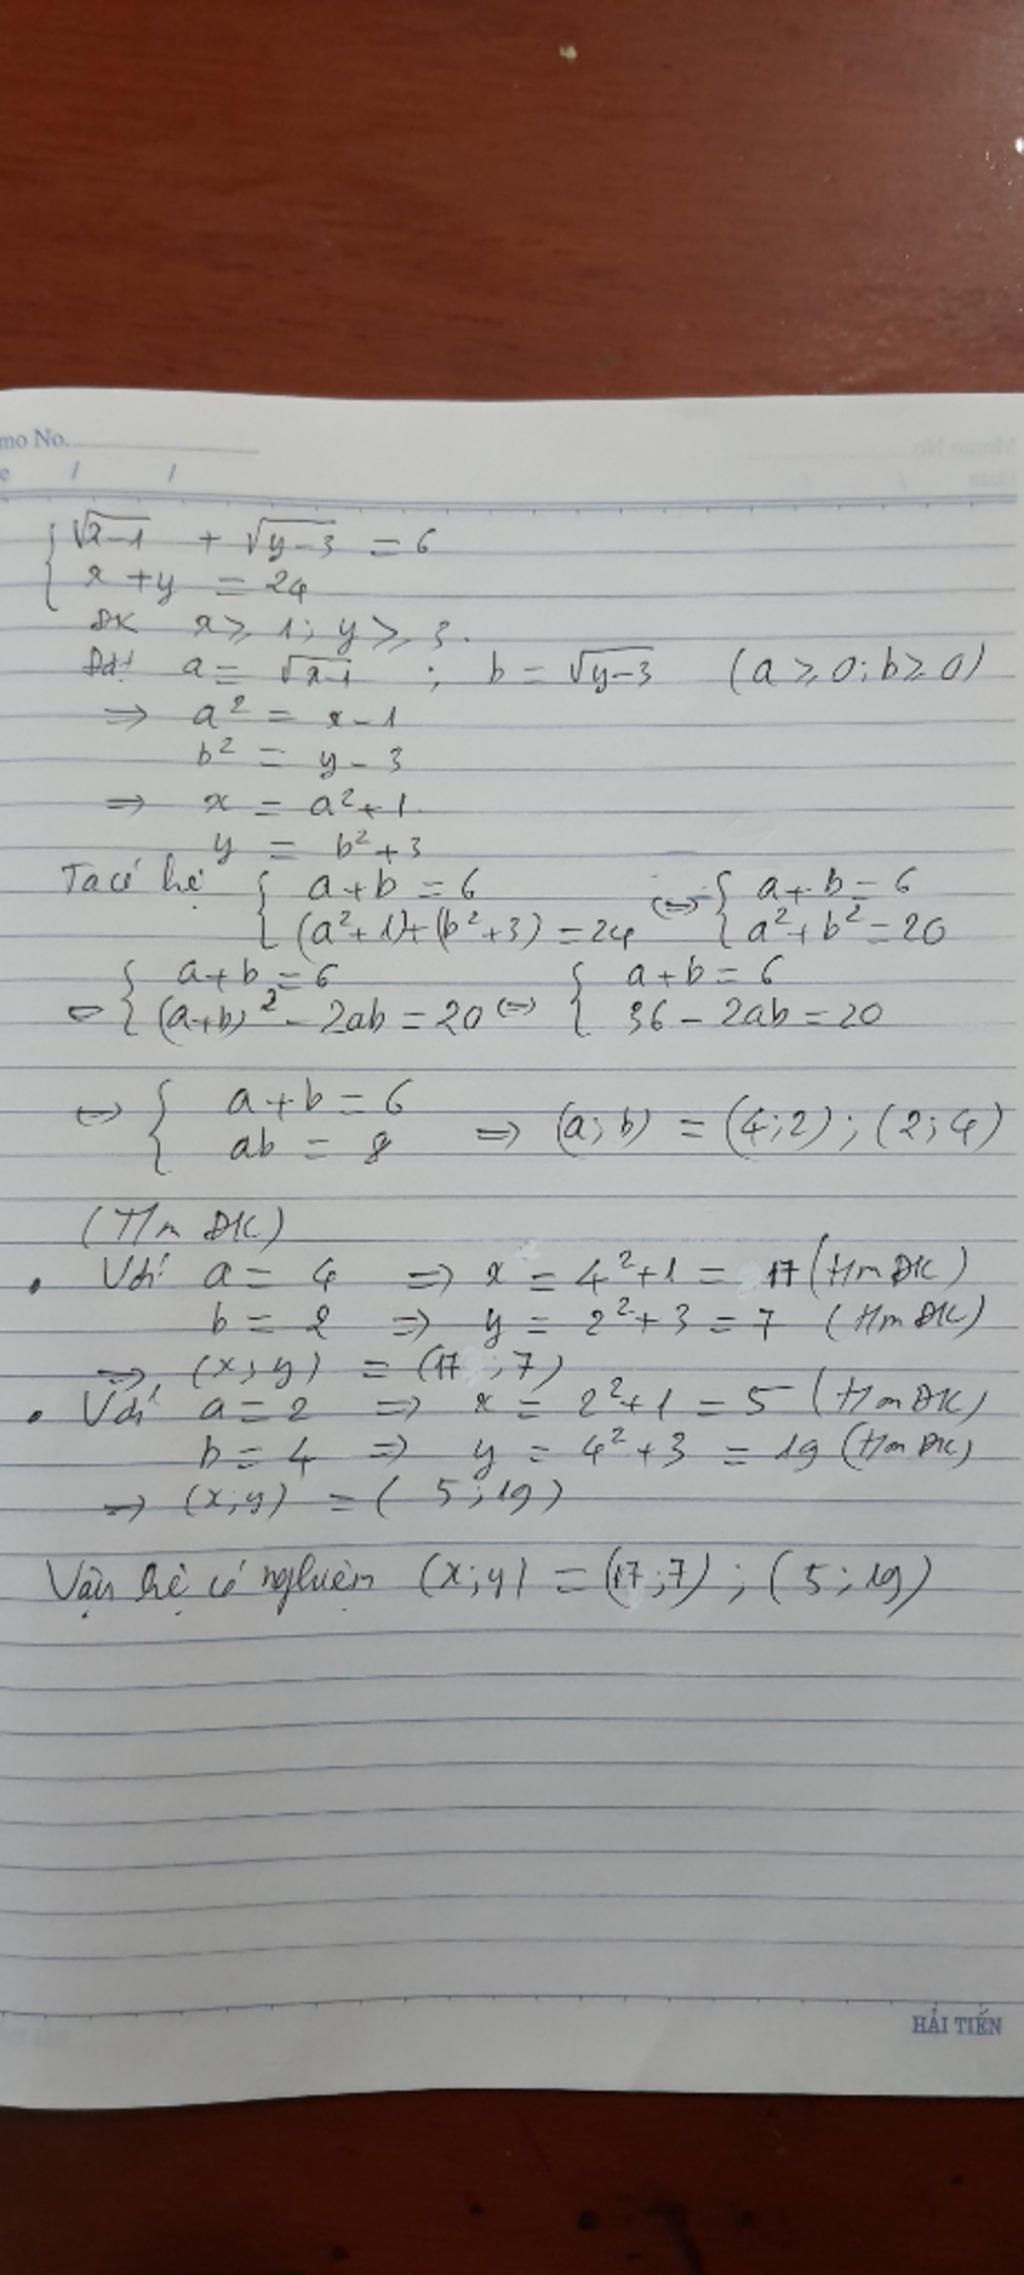 mo No.
e / /
{ √x-1 + √y-3 = 6
x + y = 24
ĐK x ≥ 1; y ≥ 3.
Đặt a = √x-1 ; b = √y-3 (a ≥ 0; b ≥ 0)
⇒ a² = x - 1
b² = y - 3
⇒ x = a² + 1
y = b² + 3
Ta có hệ { a + b = 6 ⇔ { a + b = 6
(a² + 1) + (b² + 3) = 24 a² + b² = 20
⇔ { a + b = 6 ⇔ { a + b = 6
(a+b)² - 2ab = 20 36 - 2ab = 20
⇔ { a + b = 6
ab = 8 ⇒ (a; b) = (4; 2) ; (2; 4)
(t/m ĐK)
• Với a = 4 ⇒ x = 4² + 1 = 17 (t/m ĐK)
b = 2 ⇒ y = 2² + 3 = 7 (t/m ĐK)
⇒ (x; y) = (17 ; 7)
• Với a = 2 ⇒ x = 2² + 1 = 5 (t/m ĐK)
b = 4 ⇒ y = 4² + 3 = 19 (t/m ĐK)
⇒ (x; y) = ( 5 ; 19)
Vậy hệ có nghiệm (x; y) = (17 ; 7) ; ( 5 ; 19)
HẢI TIẾN